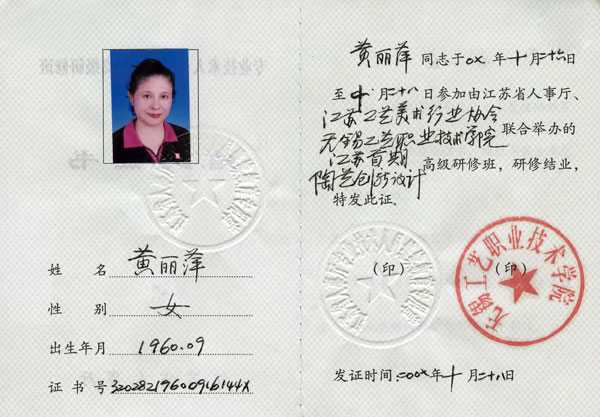 姓 名 黄丽萍
性 别 女
出生年月 1960.09
证 书 号 32028219600916144X
黄丽萍 同志于〇X年十月二十六日
至十月二十八日参加由江苏省人事厅、
江苏工艺美术行业协会
无锡工艺职业技术学院 联合举办的
江苏首期
陶艺创新设计 高级研修班，研修结业，
特发此证。
（印）
（印）
无锡工艺职业技术学院
发证时间：二00X年十月二十八日